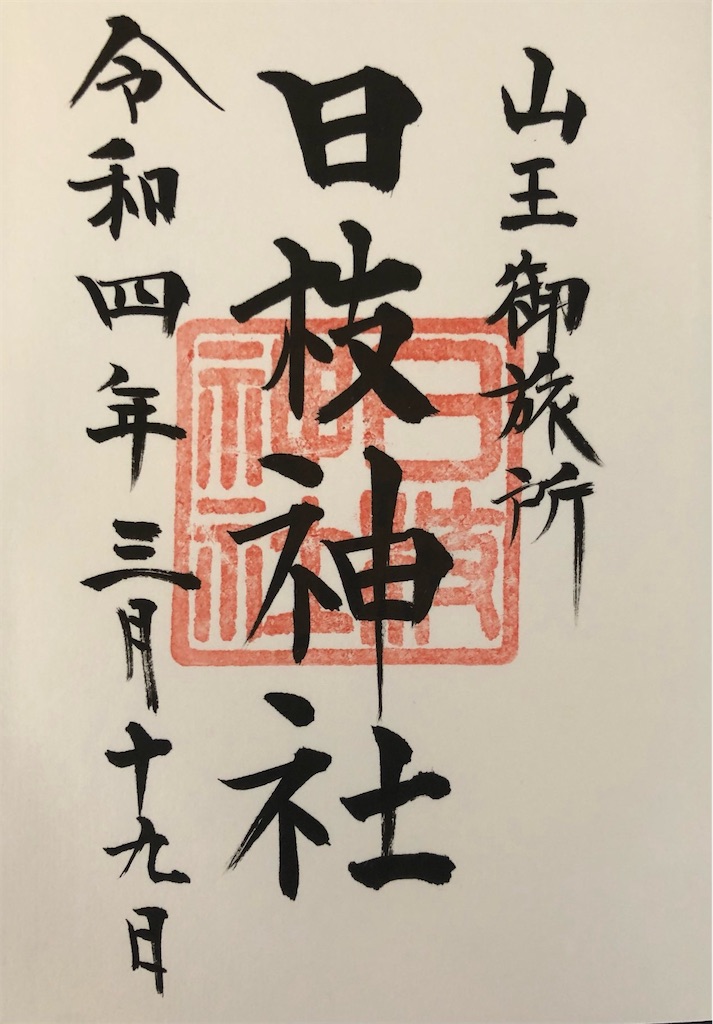 山王御旅所
日枝神社
令和四年三月十九日
日枝
神社